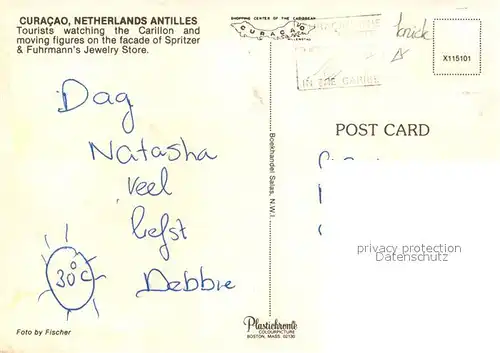 CURAÇAO, NETHERLANDS ANTILLES
Tourists watching the Carillon and
moving figures on the facade of Spritzer
& Fuhrmann's Jewelry Store.
SHOPPING CENTER OF THE CARIBBEAN
CURAÇAO
IN THE CARIBB
X115101
POST CARD
Dag
Natasha
Veel
liefst
Debbie
30°C
Boekhandel Salas, N.W.I.
privacy protection
Datenschutz
Foto by Fischer
Plastichrome
COLOURPICTURE
BOSTON, MASS. 02130